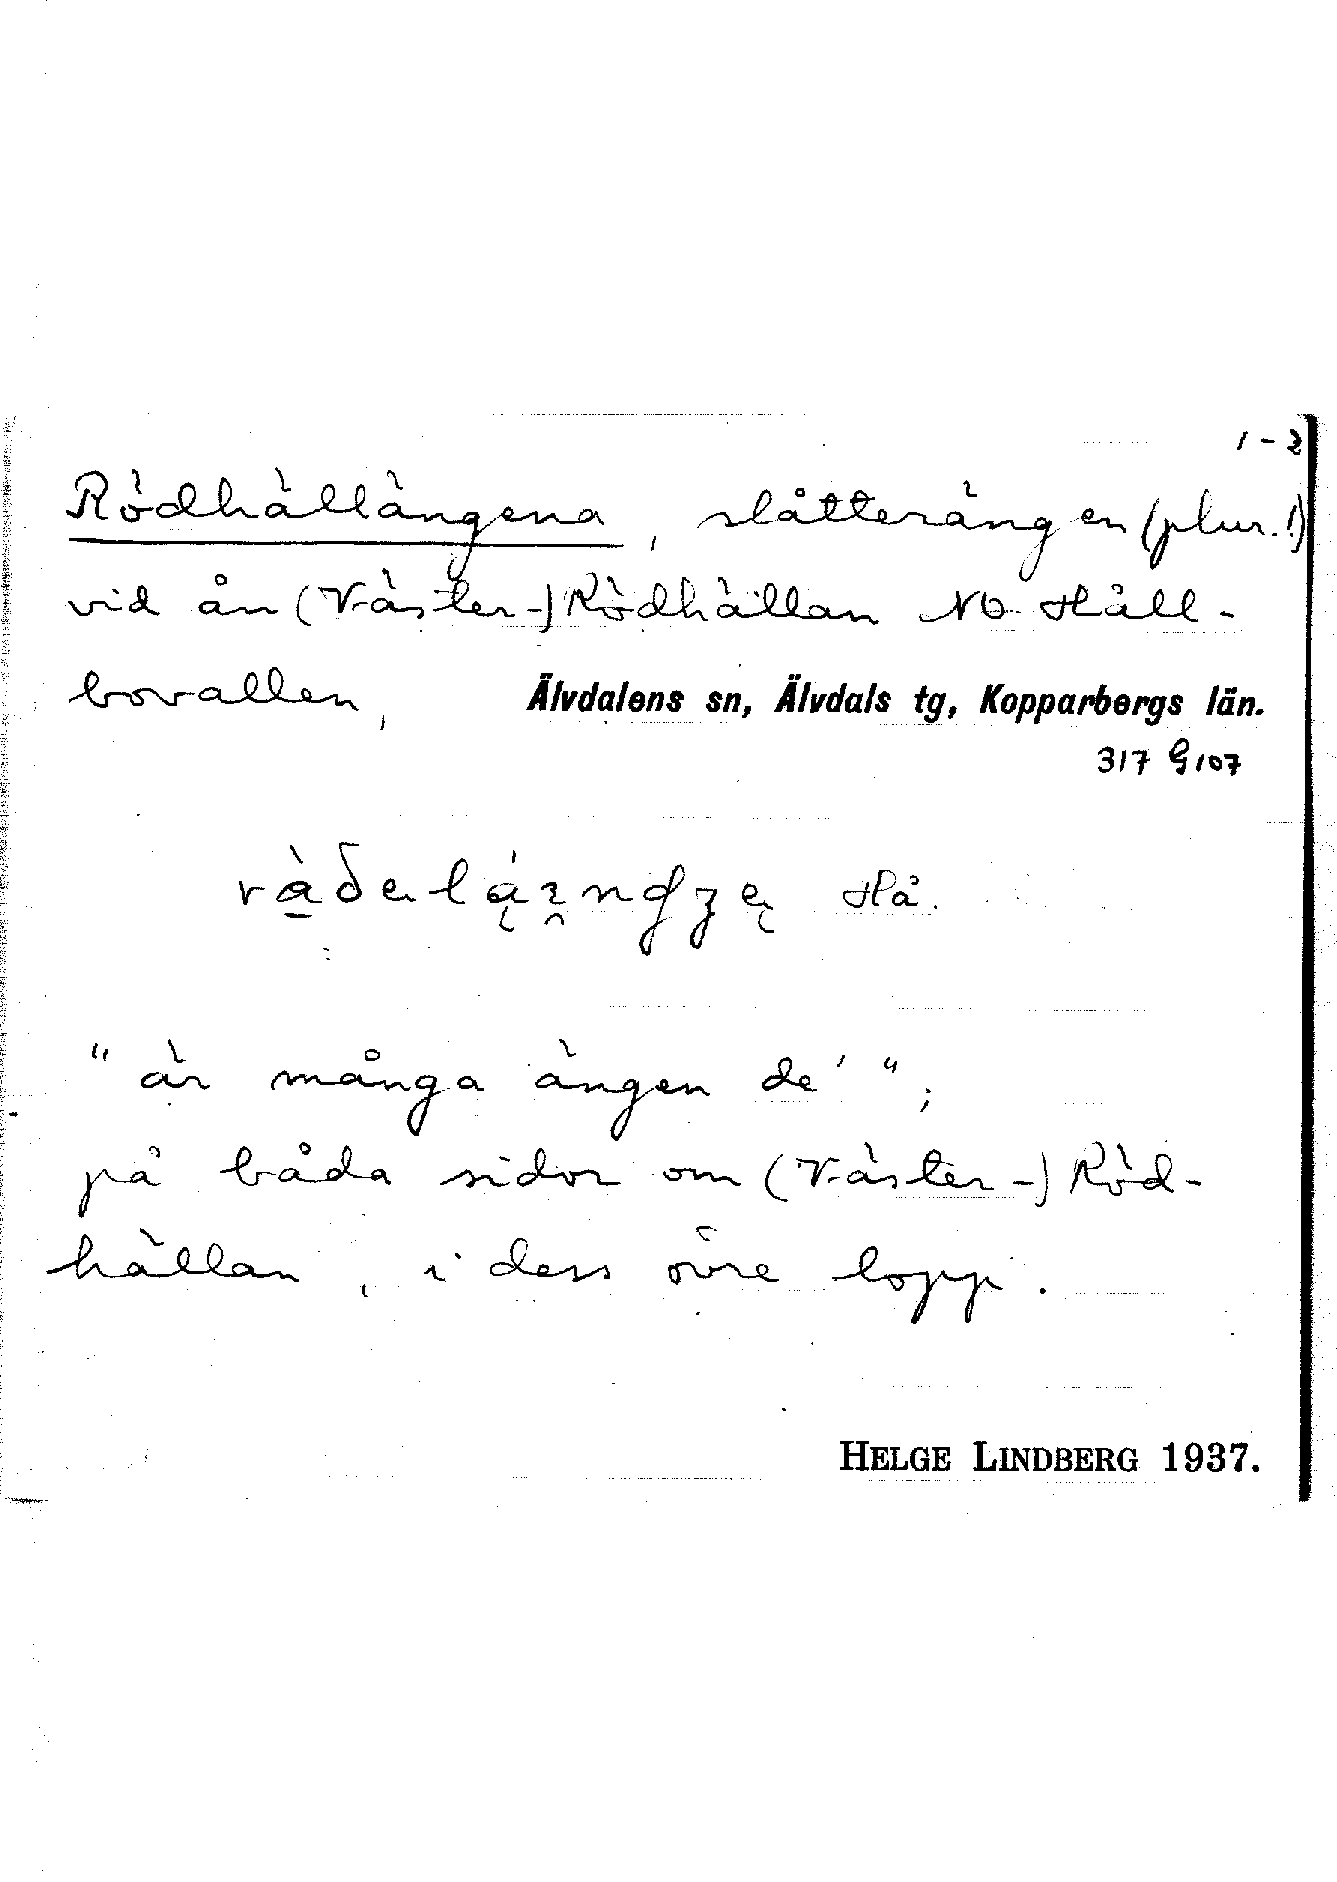 1-2
Rödhällängena, slåtterängen (plur.!)
vid ån (Väster-)Rödhällan NO Håll-
bovallen,
Älvdalens sn, Älvdals tg, Kopparbergs län.
317 G107
Hå.
"är många ängen de'";
på båda sidor om (Väster-)Röd-
hällan, i dess övre lopp.
HELGE LINDBERG 1937.